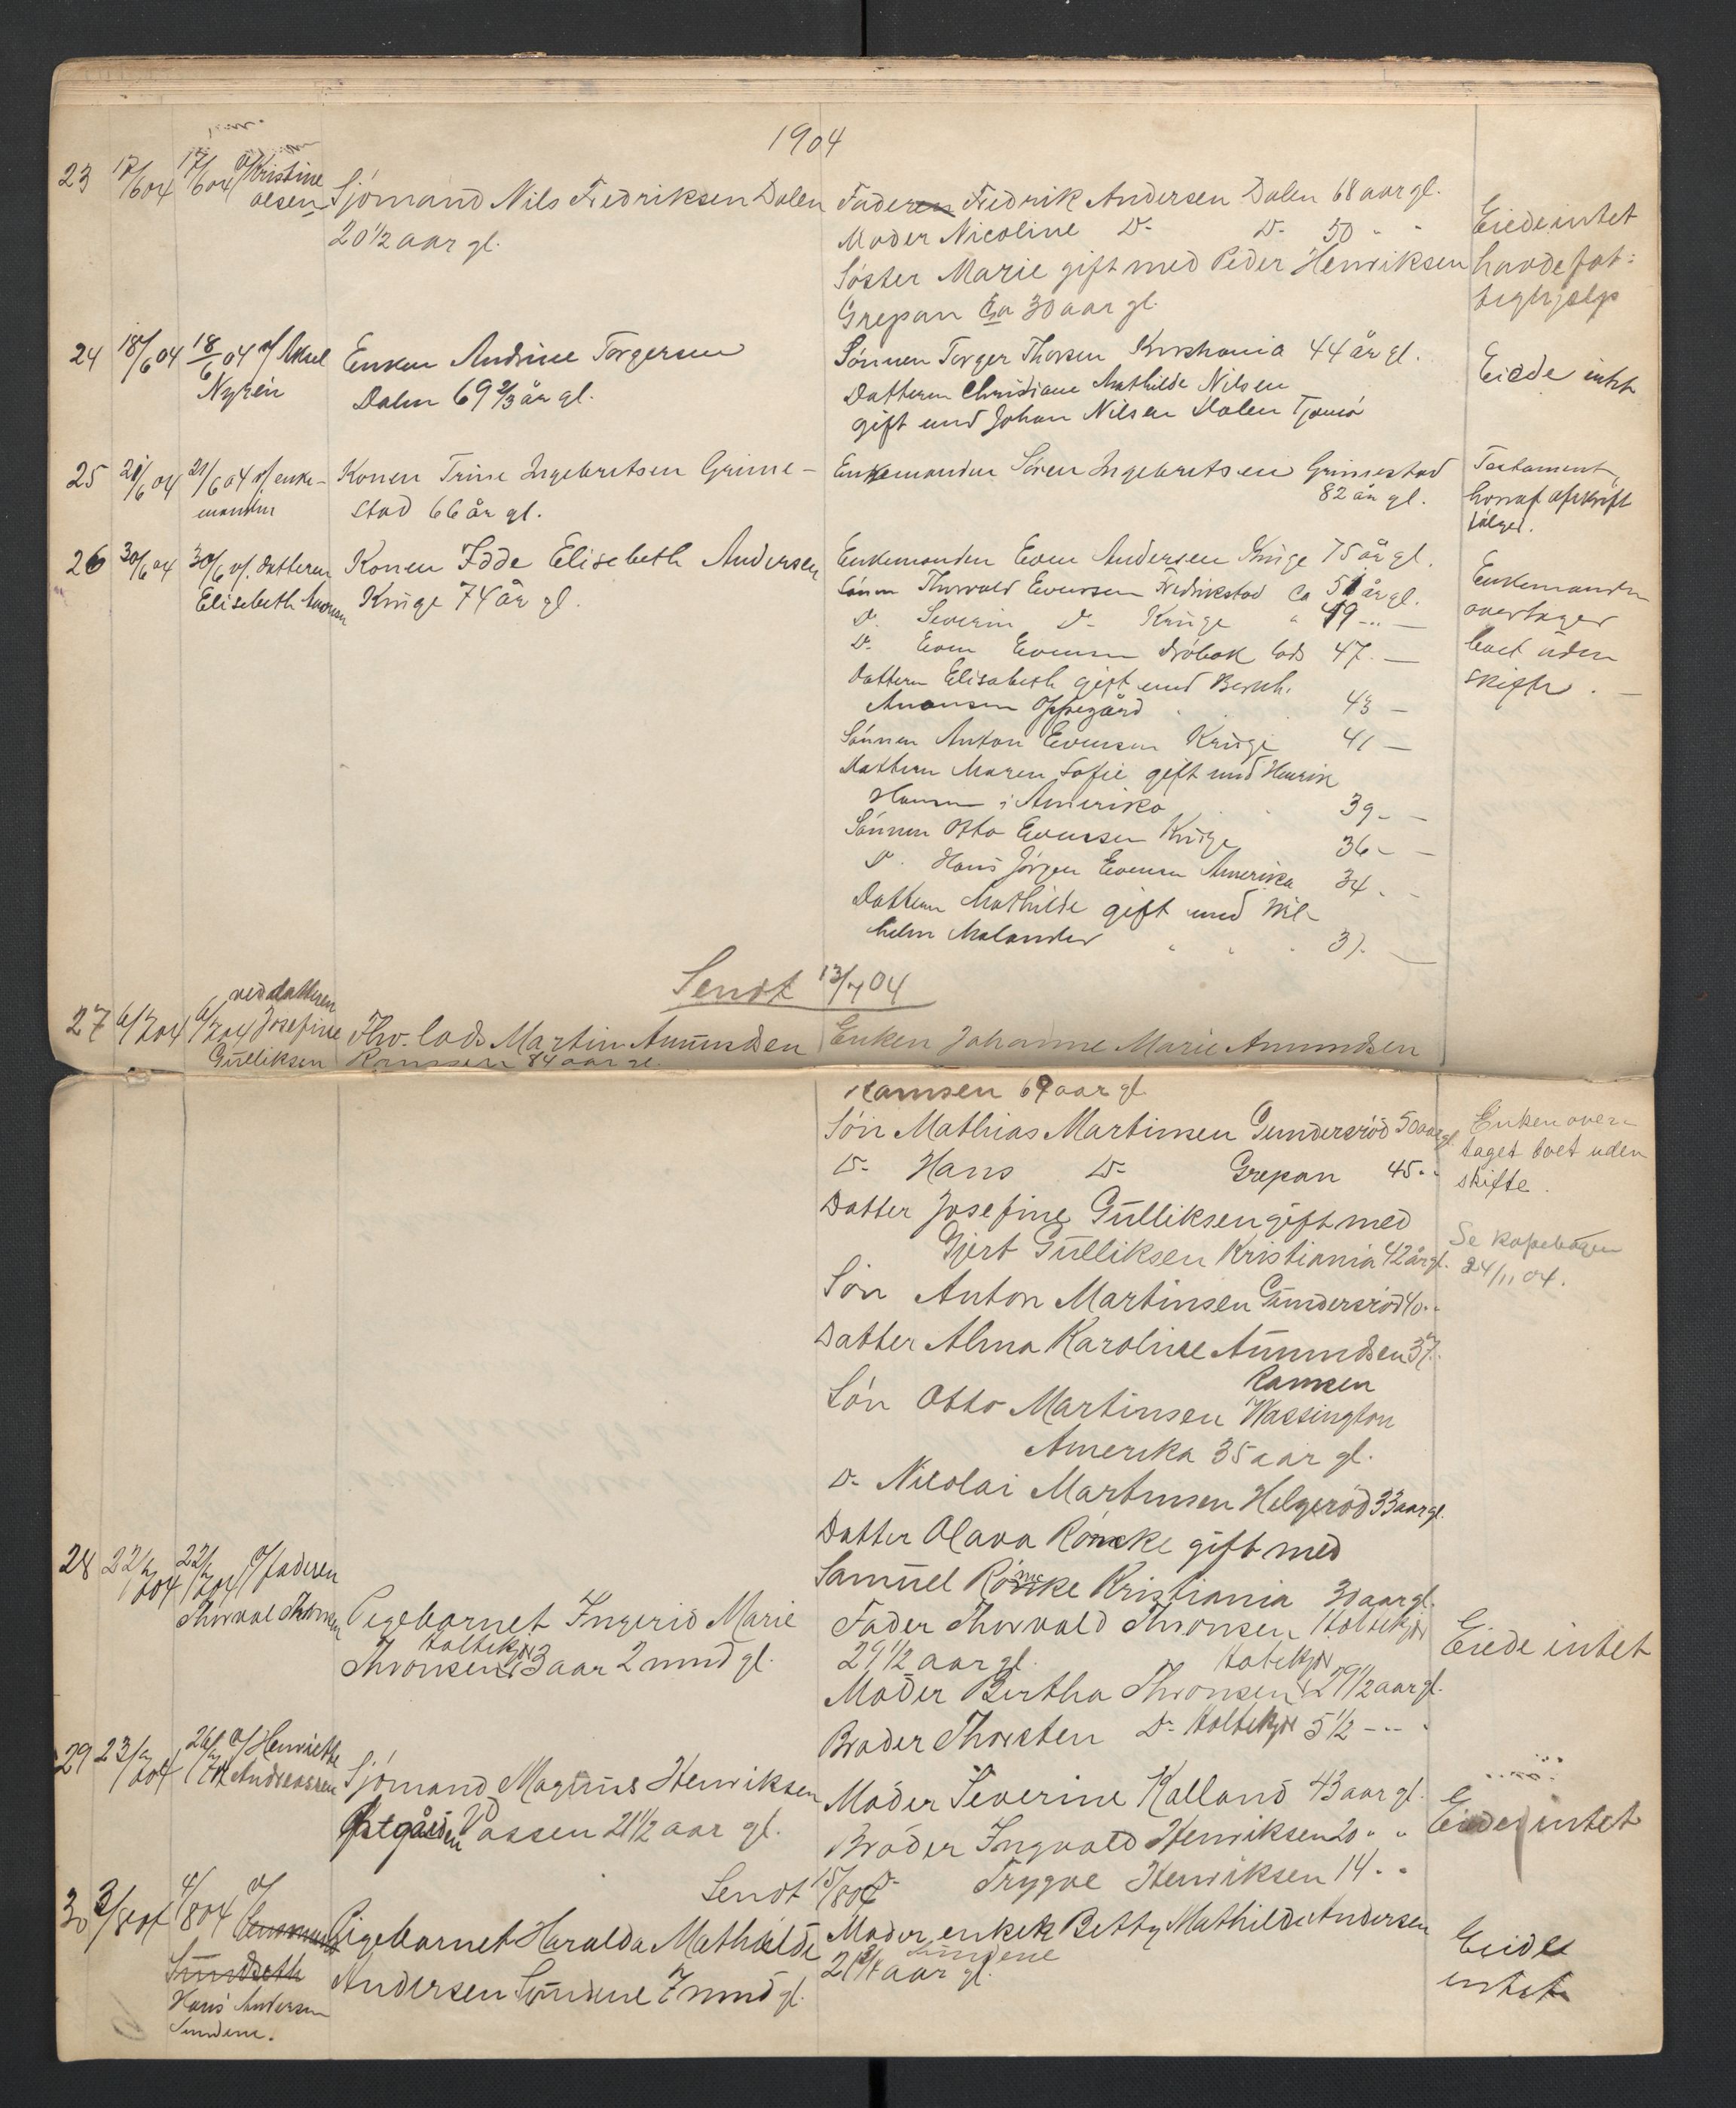 1904
23 17/6 04 17/6 04 v/ Kristine
Olsen
Sjömand Nils Fredriksen Dalen
20 1/2 aar gl.
Faderen Fredrik Andersen Dalen 68 aar gl.
Moder Nicoline D- D- 50 - -
Söster Marie gift med Peder Henriksen
Grepan Ca 30 aar gl.
Eiede intet
havde fat-
tighjælp
24 18/6 04 18/6 04 v/ Aksel
Nyrén
Enken Andrine Torgersen
Dalen 69 2/3 år gl.
Sönnen Torger Thorsen Kristiania 44 år gl.
Datteren Christiane Mathilde Nilsen
gift med Johan Nilsen Dalen Tjömö
Eiede intet
25 21/6 04 21/6 04 v/ enke-
manden
Konen Trine Ingebretsen Grime-
stad 66 år gl.
Enkemanden Sören Ingebretsen Grimestad
82 år gl.
Testament,
hvoraf afskrift
fölger.
26 30/6 04 30/6 v/. datteren
Elisebeth Anonsen
Konen Idde Elisebeth Andersen
Krüge 74 år gl.
Enkemanden Even Andersen Krüge 75 år gl.
Sönnen Thorvald Evensen Fredrikstad Ca 51 år gl.
D. Severin D- Krüge " 49 -..-
D- Even Evensen Dröbak lods 47. -
Datteren Elisabeth gift med Bernh.
Anonsen Oppegård 43 -
Sönnen Anton Evensen Krüge 41 -
Datteren Maren Sofie gift med Henrik
Hansen i Amerika 39 - -
Sönnen Otto Evensen Krüge 36 - -
D. Hans Jörgen Evensen Amerika 34 - -
Datteren Mathilde gift med Wil-
helm Malander 31. -
Enkemanden
overtager
boet uden
skifte. -
Sendt 13/7 04
27 6/7 04 6/7 04 ved datteren
Josefine
Gulliksen
Fhv. lods Martin Amundsen
Ramsen 84 aar gl.
Enken Johanne Marie Amundsen
Ramsen 69 aar gl
Sön Mathias Martinsen Gundersröd 50 aar gl.
D- Hans D- Grepan 45 - -
Datter Josefine Gulliksen gift med
Gjert Gulliksen Kristiania 42 år gl.
Sön Anton Martinsen Gundersröd 40 - -
Datter Alma Karoline Amundsen 37 -
Ramsen
Sön Otto Martinsen Wassington
Amerika 35 aar gl.
D- Nicolai Martinsen Helgeröd 33 aar gl.
Datter Olava Röncke gift med
Samuel Röncke Kristiania 30 aar gl.
Enken over-
taget boet uden
skifte.
Se kopebogen
24/11 04.
28 22/7 04 22/7 04 v/ faderen
Thorval Thronsen
Pigebarnet Ingerid Marie
Holtekjær
Thronsen 3 aar 2 mnd gl.
Fader Thorvald Thronsen Holtekjær
29 1/2 aar gl.
Holtekjær
Moder Bertha Thronsen 29 1/2 aar gl.
Broder Thorsten D- Holtekjær 5 1/2 - - -
Eiede intet
29 23/7 04 26/7 04 v/ Henriette
Andreassen
Sjömand Magnus Henriksen
Östgården Vassen 21 1/2 aar gl.
Moder Severine Kalland 43 aar gl.
Broder Ingvald Henriksen 20 " "
D- Trygve Henriksen 14 - -
Eiede intet
Sendt 15/8 04
30 3/8 04 4/8 04 v/
Sundseth
Hans Andersen
Sundene.
Pigebarnet Haralda Mathilde
Andersen Sundene 7 mnd gl.
Moder enken Betty Mathilde Andersen
Sundene
21 aar gl.
Eiede
intet